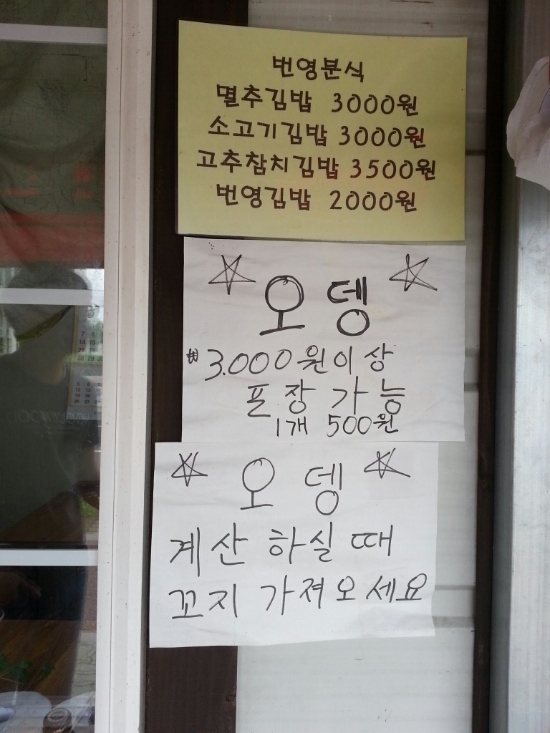 번영분식
멸추김밥 3000원
소고기김밥 3000원
고추참치김밥 3500원
번영김밥 2000원
☆ 오뎅 ☆
₩3.000원이상
포장가능
1개 500원
☆ 오뎅 ☆
계산 하실 때
꼬지 가져오세요